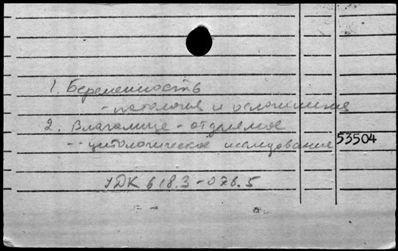 1. Беременность
- патология и осложнения
2. Влагалище - отделяемое
- цитологическое исследование 53504
УДК 618.3-076.5